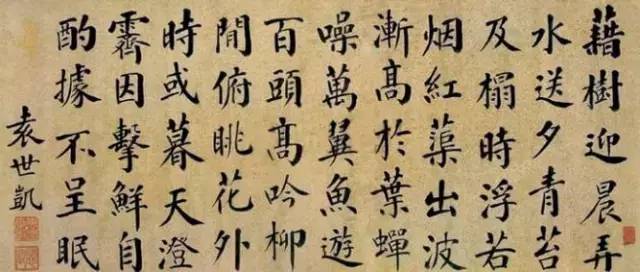 藉樹迎晨弄
水送夕青苔
及榻時浮若
烟紅蕖出波
漸髙於葉蟬
噪萬翼魚遊
百頭髙吟柳
閒俯眺花外
時或暮天澄
霽因擊鮮自
酌據不呈眠
袁世凱